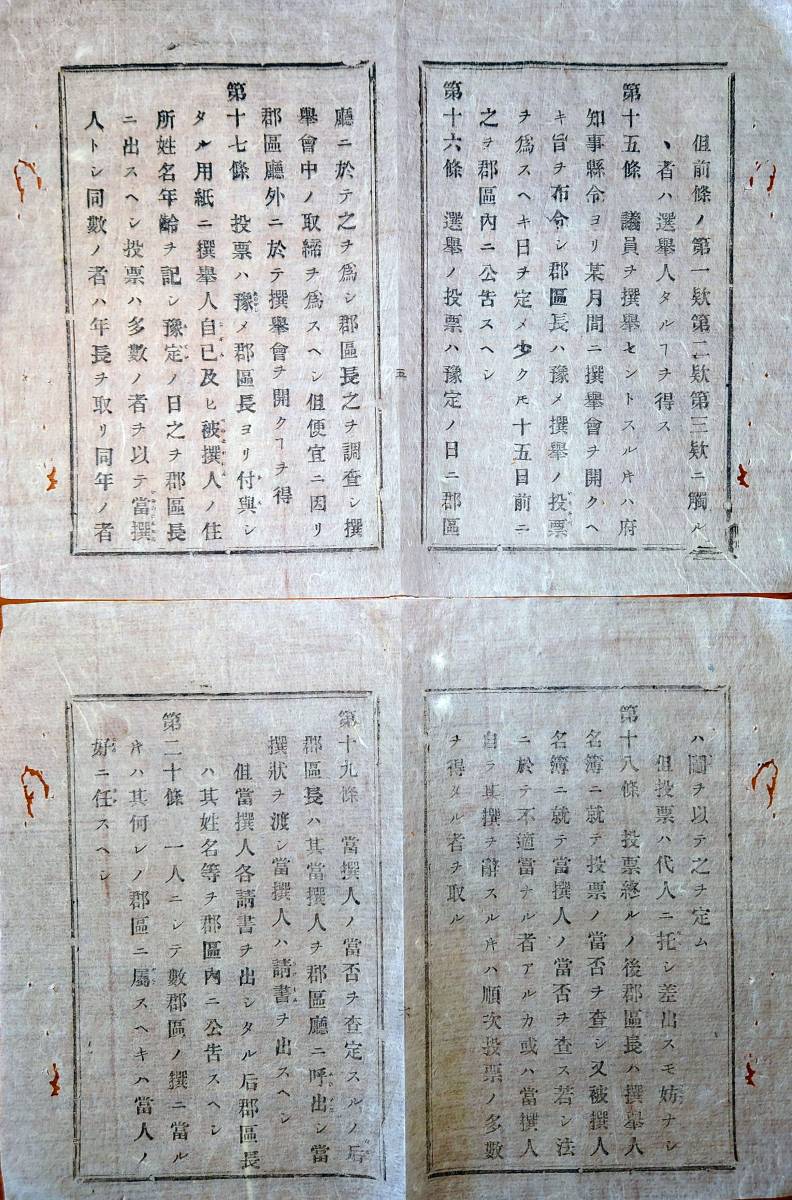 但前條ノ第一欵第二欵第三欵ニ觸ルヽ
者ハ選舉人タルヿヲ得ス
第十五條 議員ヲ撰舉セントスル𪜈ハ府
知事縣令ヨリ某月間ニ撰舉會ヲ開クヘ
キ旨ヲ布令シ郡區長ハ豫メ撰舉ノ投票
ヲ爲スヘキ日ヲ定メ少クモ十五日前ニ
之ヲ郡區內ニ公告スヘシ
第十六條 選舉ノ投票ハ豫定ノ日ニ郡區
五
廳ニ於テ之ヲ爲シ郡區長之ヲ調查シ撰
舉會中ノ取締ヲ爲スヘシ但便宜ニ因リ
郡區廳外ニ於テ撰舉會ヲ開クヿヲ得
第十七條 投票ハ豫メ郡區長ヨリ付與シ
タル用紙ニ撰舉人自已及ヒ被撰人ノ住
所姓名年齡ヲ記シ豫定ノ日之ヲ郡區長
ニ出スヘシ投票ハ多數ノ者ヲ以テ當撰
人トシ同數ノ者ハ年長ヲ取リ同年ノ者
ハ鬮ヲ以テ之ヲ定ム
但投票ハ代人ニ托シ差出スモ妨ナシ
第十八條 投票終ルノ後郡區長ハ撰舉人
名簿ニ就テ投票ノ當否ヲ查シ又被撰人
名簿ニ就テ當撰人ノ當否ヲ查ス若シ法
ニ於テ不適當ナル者アルカ或ハ當撰人
自ラ其撰ヲ辭スル𪜈ハ順次投票ノ多數
ヲ得タル者ヲ取ル
六
第十九條 當撰人ノ當否ヲ查定スルノ后
郡區長ハ其當撰人ヲ郡區廳ニ呼出シ當
撰狀ヲ渡シ當撰人ハ請書ヲ出スヘシ
但當撰人各請書ヲ出シタル后郡區長
ハ其姓名等ヲ郡區內ニ公告スヘシ
第二十條 一人ニシテ數郡區ノ撰ニ當ル
𪜈ハ其何レノ郡區ニ屬スヘキハ當人ノ
好ニ任スヘシ